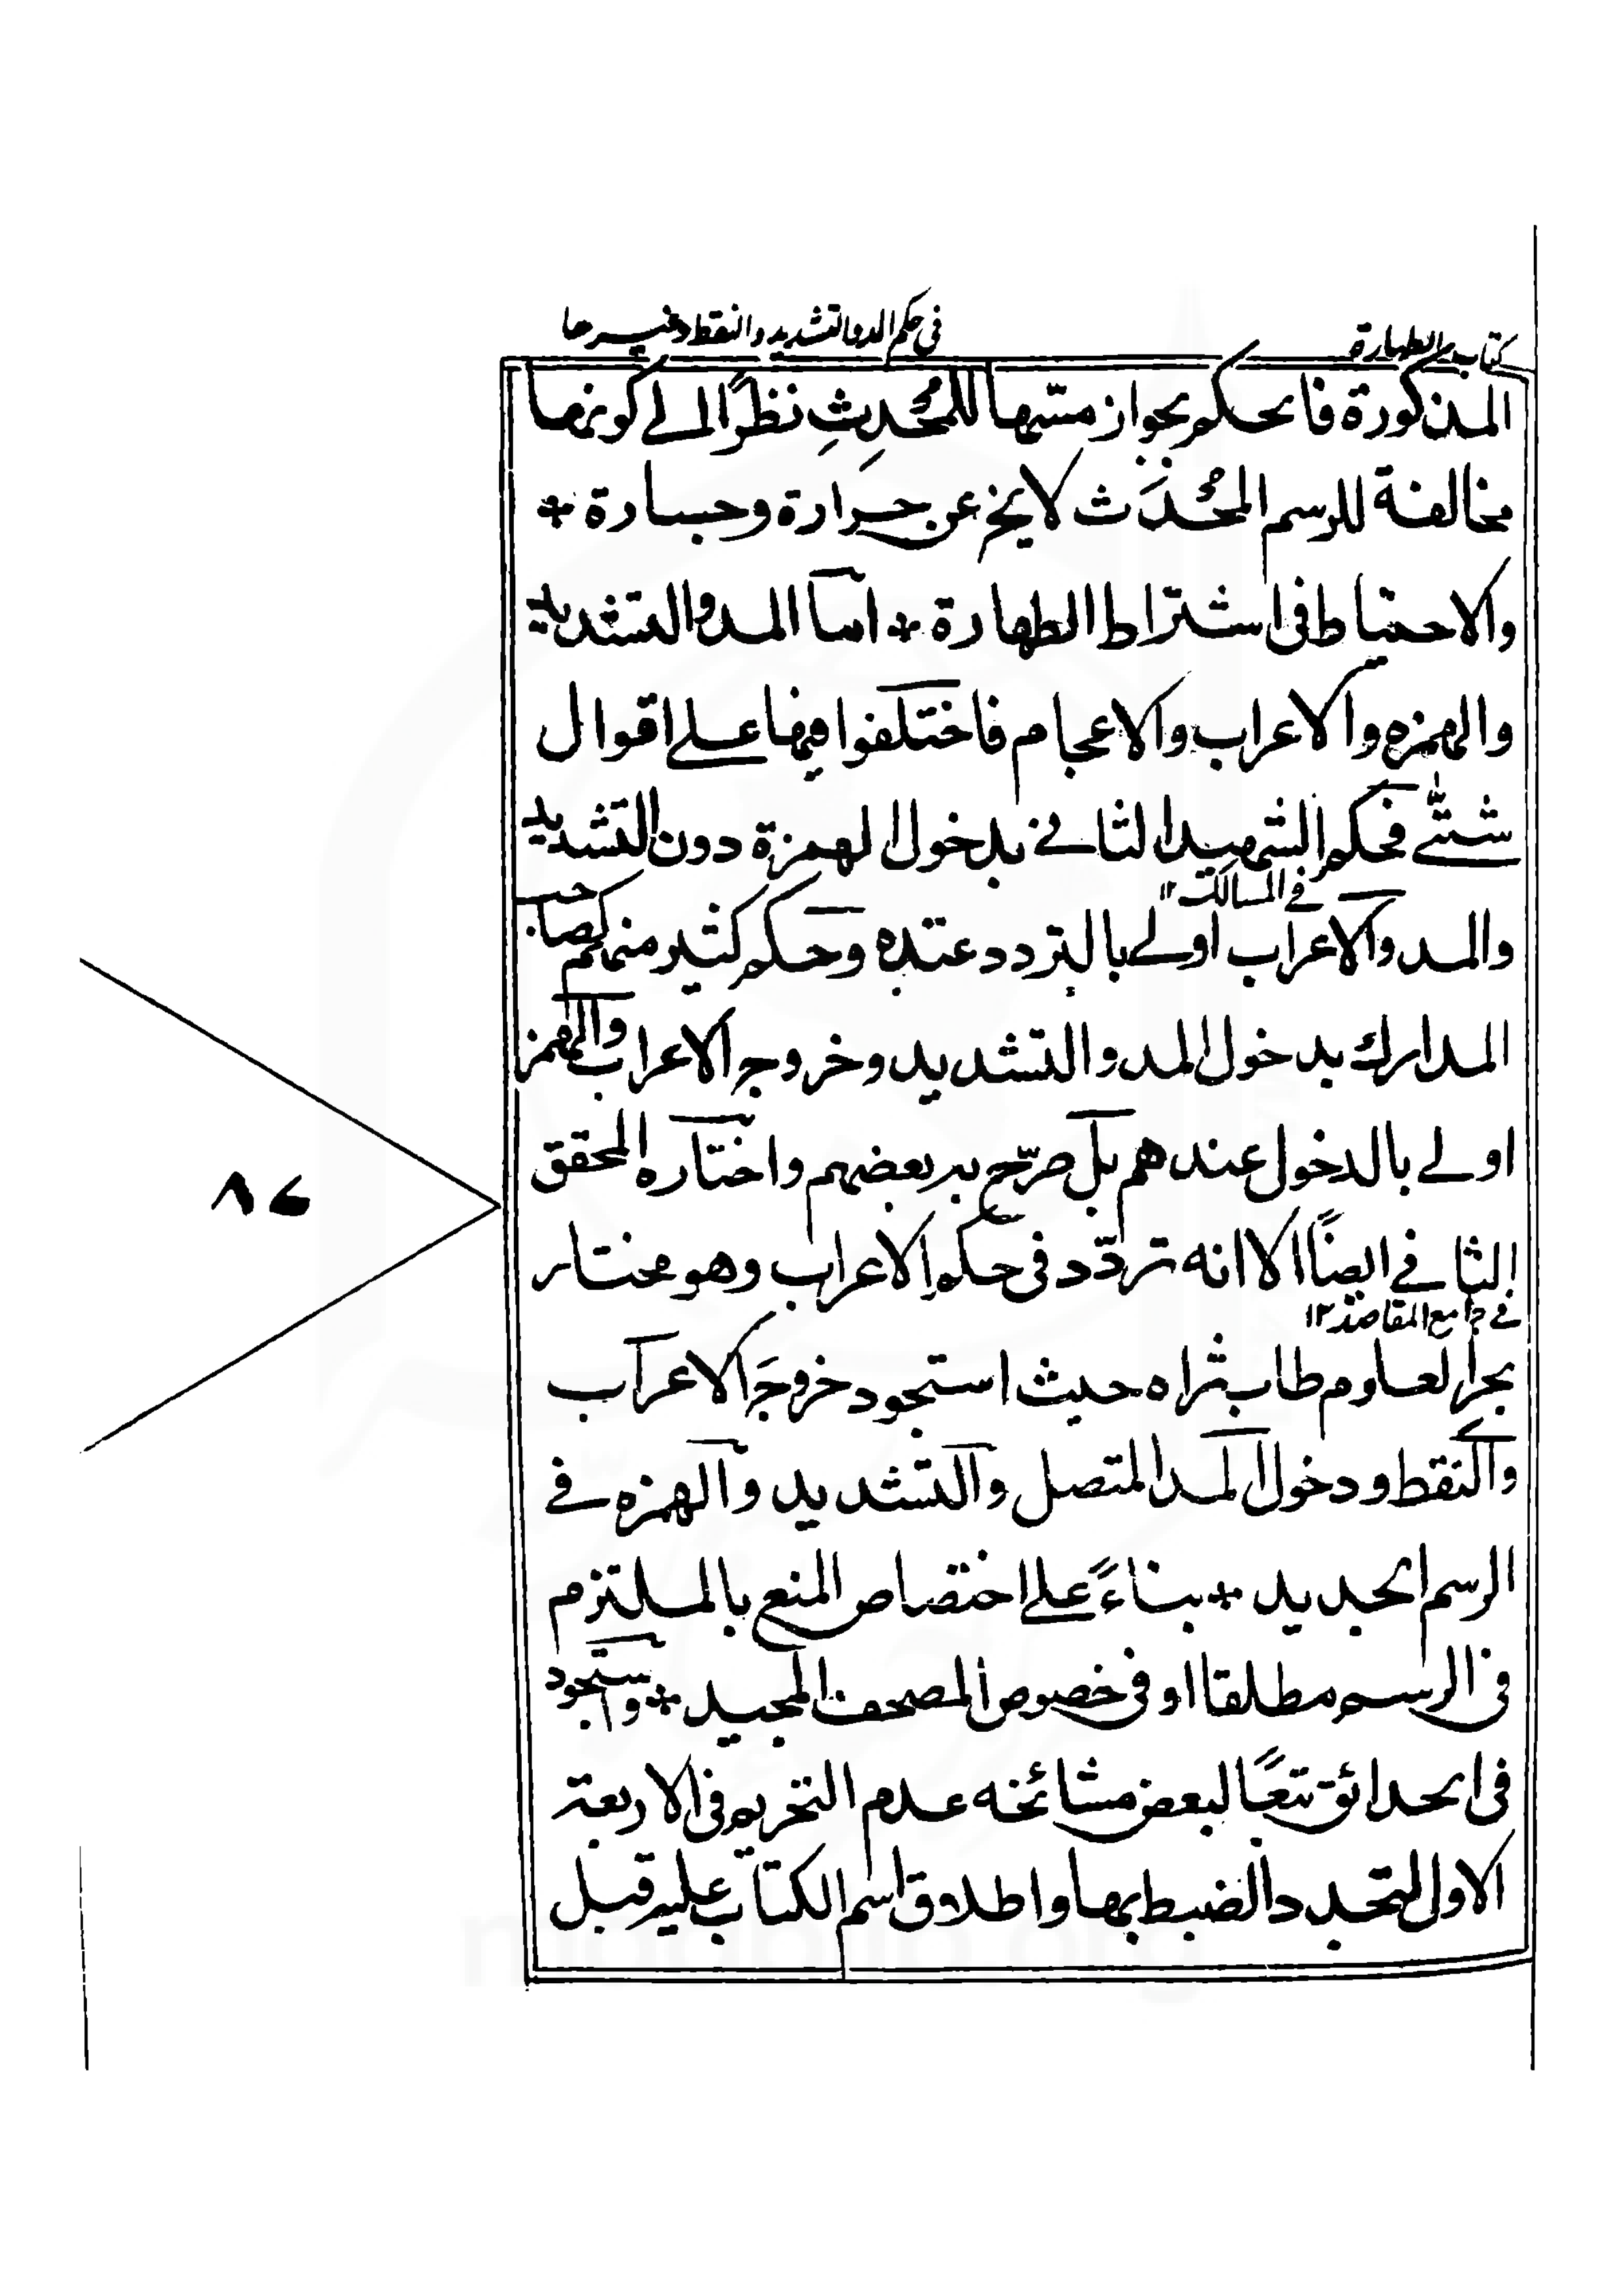 كتاب الطهارة
في حكم المد والتشديد والنقط وغيرها
المذكورة فالحكم بجواز مسّها للمُحْدِثِ نظرًا الى كونها
مخالفة للرسم المُحْدَث لا يخ عن جرارة وجسارة *
والاحتياط فى اشتراط الطهارة * امّا المد والتشديد
والهمزه والاعراب والاعجام فاختلفوا فيها على اقوال
شتّٰى فحكم الشهيد الثانے بدخول الهمزة دون التشديد
فے المسالك ۱۲
والمد والاعراب اولے بالتردد عنده وحكم كثير منهم كصاحب
المدارك بدخول المد والتشديد وخروج الاعراب والهمز
اولے بالدخول عندهم بل صرّح به بعضهم واختاره المحقق
الثانے ايضًا الا انه تردّد فى حكم الاعراب وهو مختار
فے جامع المقاصد ۱۲
بحر العلوم طاب ثراه حيث استجود خروجَ الاعراب
والنقط ودخول المد المتصل والتشديد والهمزه فے
الرسم الجديد * بناءً على اختصاص المنع بالملتزم
فى الرسم مطلقا او فى خصوص المصحف المجيد * واستجود
فى الحدائق تبعًا لبعض مشائخه عدم التحريم فى الاربعة
الاول لتجدد الضبط بها واطلاق اسم الكتاب عليه قبل
۸۶